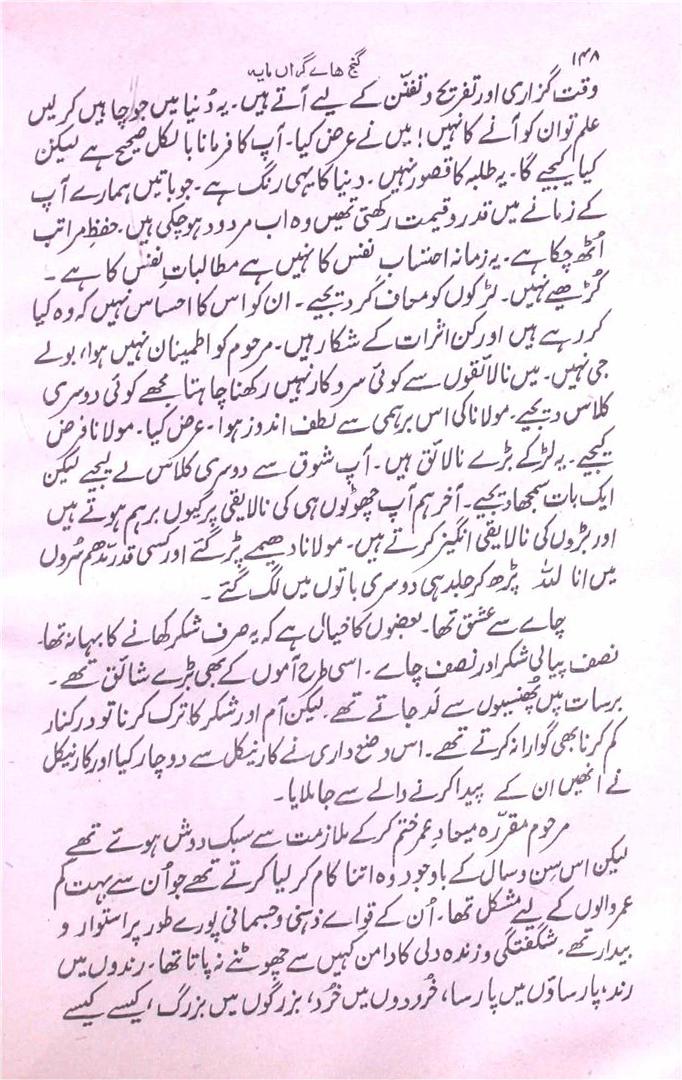 ۱۴۸
گنج ہائے گراں مایہ
وقت گزاری اور تفریح و تفنّن کے لیے آتے ہیں۔ یہ دُنیا میں جو چاہیں کر لیں
علم تو ان کو آنے کا نہیں! میں نے عرض کیا۔ آپ کا فرمانا بالکل صحیح ہے لیکن
کیا کیجیے گا۔ یہ طلبہ کا قصور نہیں۔ دنیا کا یہی رنگ ہے۔ جو باتیں ہمارے آپ
کے زمانے میں قدر و قیمت رکھتی تھیں وہ اب مردود ہو چکی ہیں۔ حفظِ مراتب
اُٹھ چکا ہے۔ یہ زمانہ احتساب نفس کا نہیں ہے مطالباتِ نفس کا ہے۔
کُڑھیے نہیں۔ لڑکوں کو معاف کر دیجیے۔ ان کو اس کا احساس نہیں کہ وہ کیا
کر رہے ہیں اور کن اثرات کے شکار ہیں۔ مرحوم کو اطمینان نہیں ہوا، بولے
جی نہیں۔ میں نالائقوں سے کوئی سروکار نہیں رکھنا چاہتا مجھے کوئی دوسری
کلاس دیجیے۔ مولانا کی اس برہمی سے لطف اندوز ہوا۔ عرض کیا۔ مولانا فرض
کیجیے۔ یہ لڑکے بڑے نالائق ہیں۔ آپ شوق سے دوسری کلاس لے لیجیے لیکن
ایک بات سمجھا دیجیے۔ آخر ہم آپ چھوٹوں ہی کی نالایقی پر کیوں برہم ہوتے ہیں
اور بڑوں کی نالایقی انگیز کرتے ہیں۔ مولانا دھیمے پڑ گئے اور کسی قدر مدّھم سُروں
میں انا للہ پڑھ کر جلد ہی دوسری باتوں میں لگ گئے۔
چاے سے عشق تھا۔ بعضوں کا خیال ہے کہ یہ صرف شکر کھانے کا بہانہ تھا۔
نصف پیالی شکر اور نصف چاے۔ اسی طرح آموں کے بھی بڑے شائق تھے۔
برسات میں پُھنسیوں سے لَد جاتے تھے۔ لیکن آم اور شکر کا ترک کرنا تو درکنار
کم کرنا بھی گوارا نہ کرتے تھے۔ اس وضع داری نے کارنیکل سے دوچار کیا اور کارنیکل
نے انھیں ان کے پیدا کرنے والے سے جا ملایا۔
مرحوم مقررّہ میعادِ عمر ختم کر کے ملازمت سے سبک دوش ہوئے تھے
لیکن اس سِن و سال کے باوجود وہ اتنا کام کر لیا کرتے تھے جو اُن سے بہت کم
عمر والوں کے لیے مشکل تھا۔ اُن کے قواے ذہنی و جسمانی پورے طور پر استوار و
بیدار تھے۔ شگفتگی و زندہ دلی کا دامن کہیں سے چھوٹنے نہ پاتا تھا۔ رندوں میں
رند، پارساؤں میں پارسا، خُردوں میں خُرد، بزرگوں میں بزرگ، کیسے کیسے